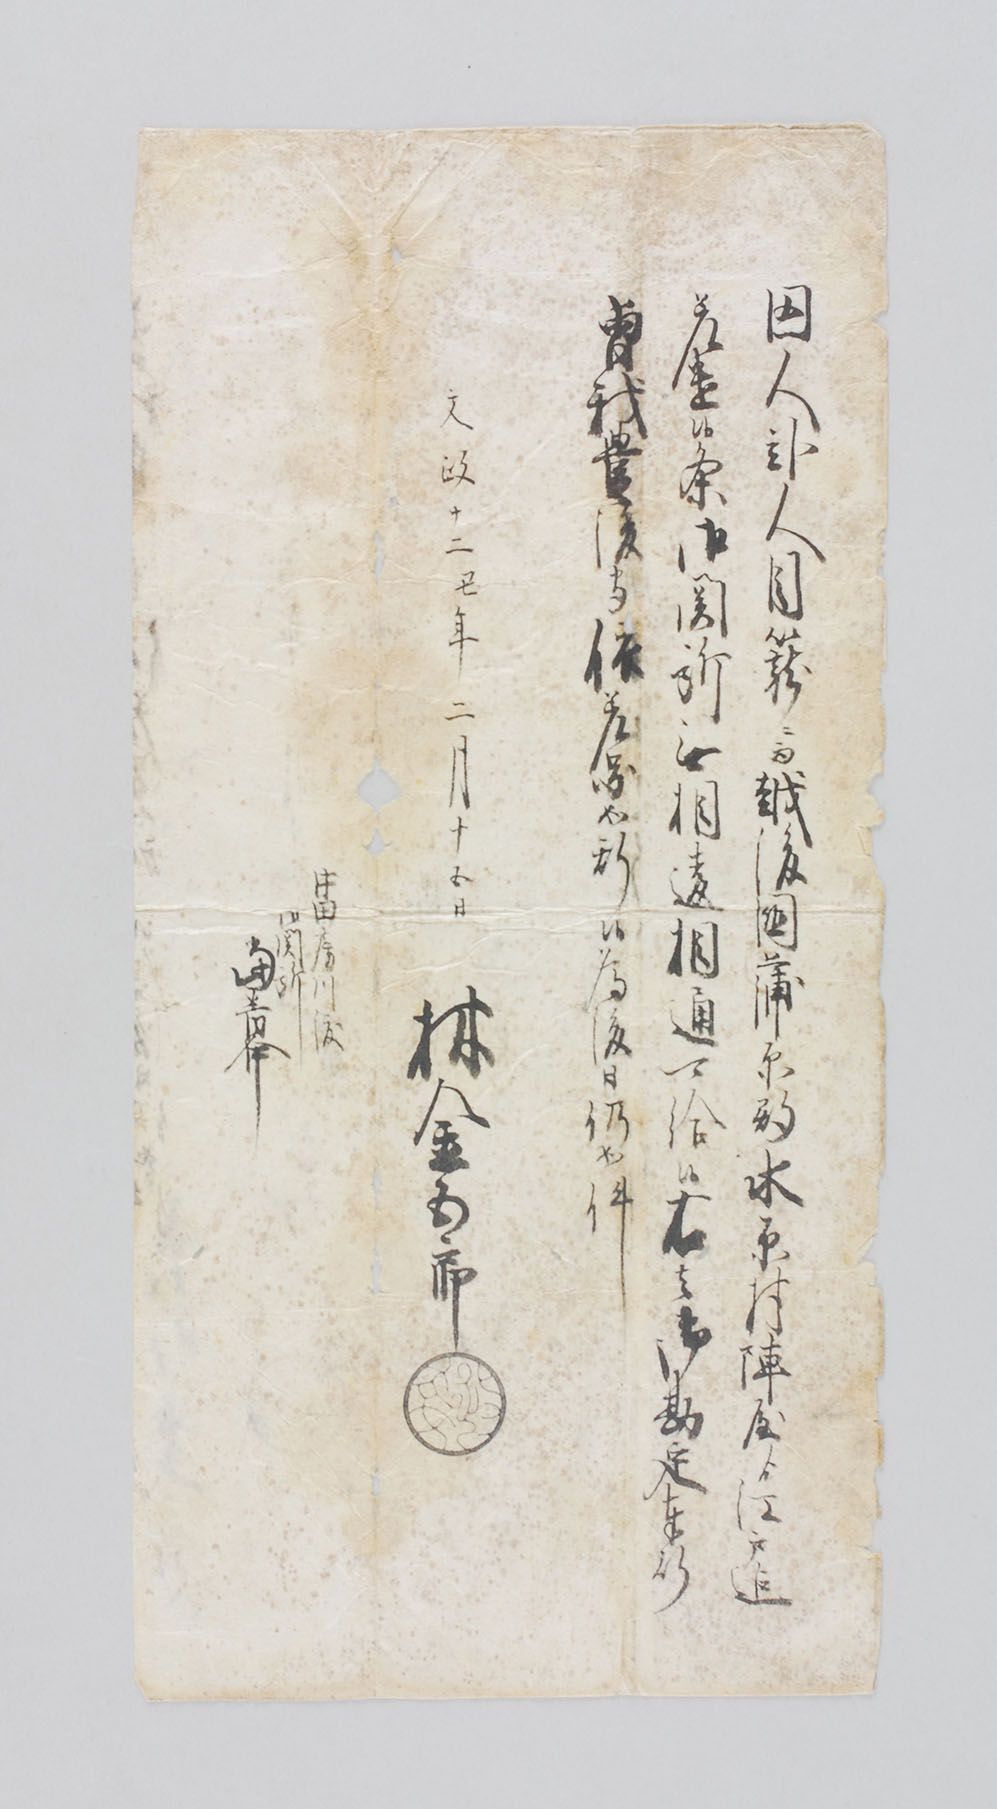 囚人弐人目籠ニ而越後国蒲原郡水原村陣屋ゟ江戸迄
差遣候条御関所無相違相通可給候右者御勘定奉行
曽我豊後守依差図如斯候為後日仍如件
文政十二丑年二月十五日
林金五郎
中田房川渡
御関所
番衆中